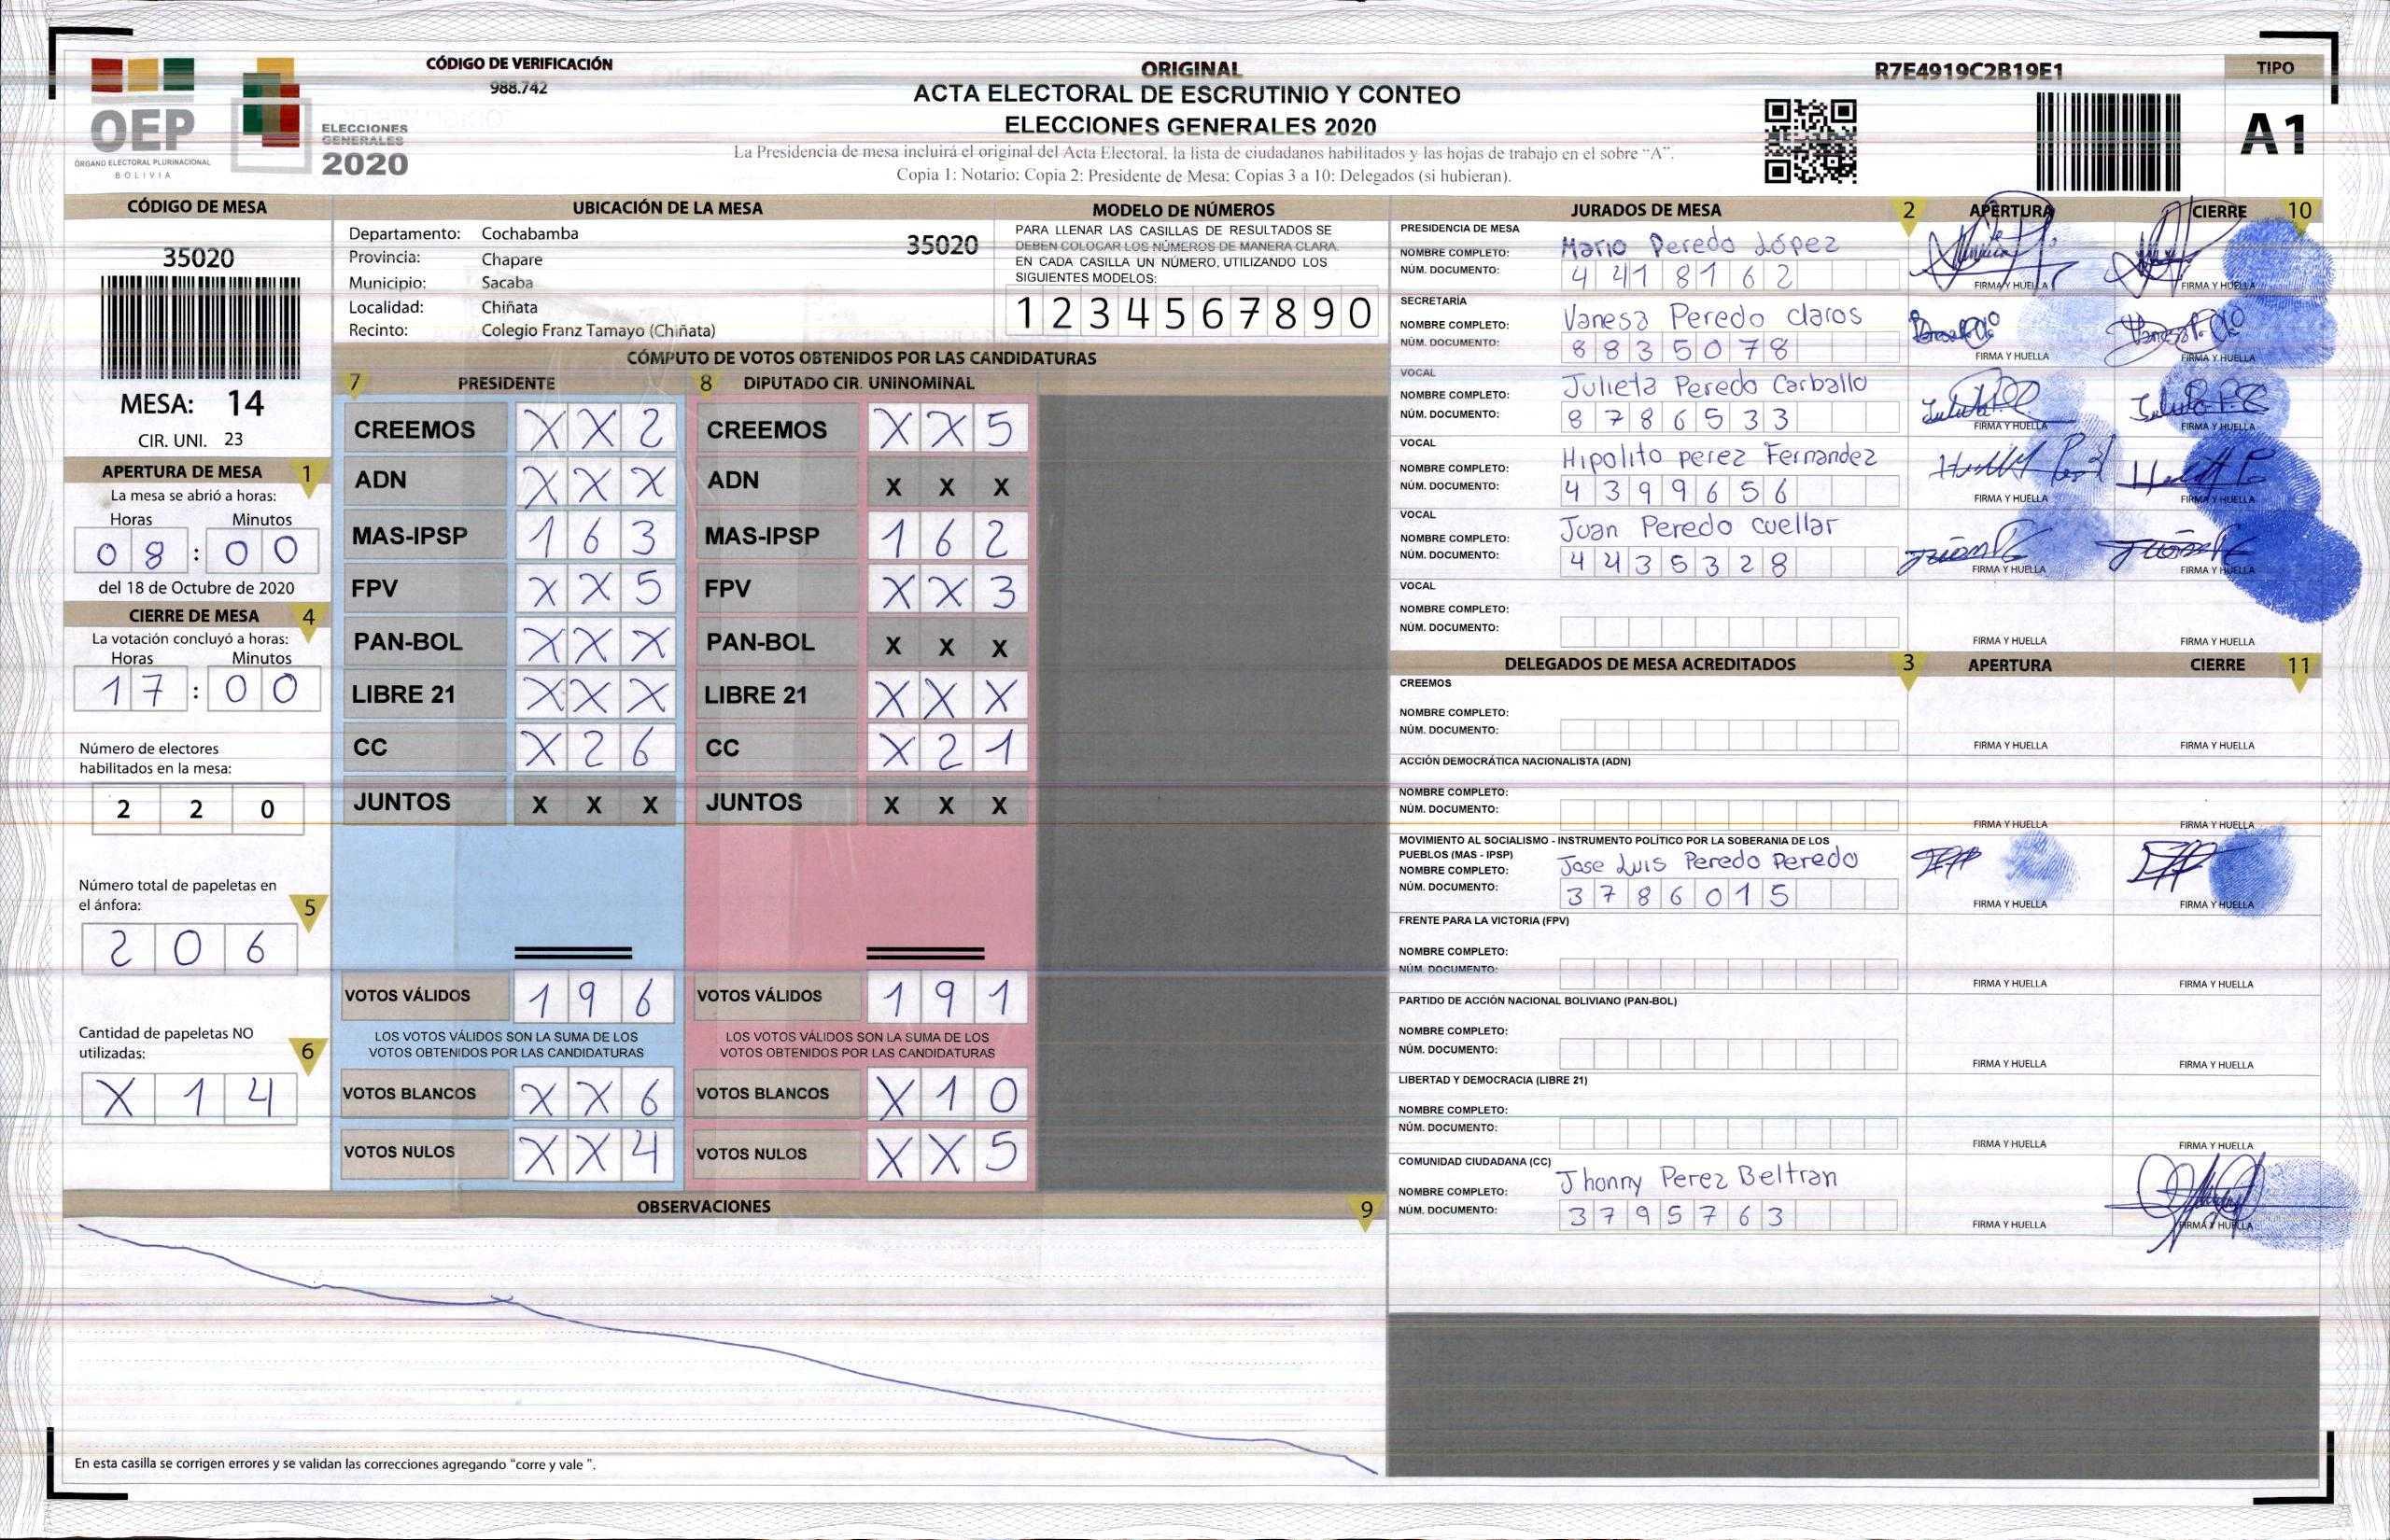 CÓDIGO DE VERIFICACIÓN
988.742
OEP
ÓRGANO ELECTORAL PLURINACIONAL
BOLIVIA
ELECCIONES
GENERALES
2020
ORIGINAL
ACTA ELECTORAL DE ESCRUTINIO Y CONTEO
ELECCIONES GENERALES 2020
La Presidencia de mesa incluirá el original del Acta Electoral, la lista de ciudadanos habilitados y las hojas de trabajo en el sobre “A”.
Copia 1: Notario; Copia 2: Presidente de Mesa; Copias 3 a 10: Delegados (si hubieran).
R7E4919C2B19E1
TIPO
A1
CÓDIGO DE MESA
35020
MESA: 14
CIR. UNI. 23
APERTURA DE MESA 1
La mesa se abrió a horas:
Horas Minutos
08 : 00
del 18 de Octubre de 2020
CIERRE DE MESA 4
La votación concluyó a horas:
Horas Minutos
17 : 00
Número de electores
habilitados en la mesa:
2 2 0
Número total de papeletas en
el ánfora: 5
2 0 6
Cantidad de papeletas NO
utilizadas: 6
X 1 4
UBICACIÓN DE LA MESA
Departamento: Cochabamba
35020
Provincia: Chapare
Municipio: Sacaba
Localidad: Chiñata
Recinto: Colegio Franz Tamayo (Chiñata)
MODELO DE NÚMEROS
PARA LLENAR LAS CASILLAS DE RESULTADOS SE
DEBEN COLOCAR LOS NÚMEROS DE MANERA CLARA.
EN CADA CASILLA UN NÚMERO, UTILIZANDO LOS
SIGUIENTES MODELOS:
1 2 3 4 5 6 7 8 9 0
CÓMPUTO DE VOTOS OBTENIDOS POR LAS CANDIDATURAS
7 PRESIDENTE 8 DIPUTADO CIR. UNINOMINAL
CREEMOS X X 2 CREEMOS X X 5
ADN X X X ADN X X X
MAS-IPSP 1 6 3 MAS-IPSP 1 6 2
FPV X X 5 FPV X X 3
PAN-BOL X X X PAN-BOL X X X
LIBRE 21 X X X LIBRE 21 X X X
CC X 2 6 CC X 2 1
JUNTOS X X X JUNTOS X X X
VOTOS VÁLIDOS 1 9 6 VOTOS VÁLIDOS 1 9 1
LOS VOTOS VÁLIDOS SON LA SUMA DE LOS LOS VOTOS VÁLIDOS SON LA SUMA DE LOS
VOTOS OBTENIDOS POR LAS CANDIDATURAS VOTOS OBTENIDOS POR LAS CANDIDATURAS
VOTOS BLANCOS X X 6 VOTOS BLANCOS X 1 0
VOTOS NULOS X X 4 VOTOS NULOS X X 5
OBSERVACIONES 9
En esta casilla se corrigen errores y se validan las correcciones agregando "corre y vale ".
JURADOS DE MESA 2 APERTURA CIERRE 10
PRESIDENCIA DE MESA
NOMBRE COMPLETO: Mario Peredo López
NÚM. DOCUMENTO: 4418162
FIRMA Y HUELLA FIRMA Y HUELLA
SECRETARÍA
NOMBRE COMPLETO: Vanesa Peredo claros
NÚM. DOCUMENTO: 8835078
FIRMA Y HUELLA FIRMA Y HUELLA
VOCAL
NOMBRE COMPLETO: Julieta Peredo Carballo
NÚM. DOCUMENTO: 8786533
FIRMA Y HUELLA FIRMA Y HUELLA
VOCAL
NOMBRE COMPLETO: Hipolito perez Fernandez
NÚM. DOCUMENTO: 4399656
FIRMA Y HUELLA FIRMA Y HUELLA
VOCAL
NOMBRE COMPLETO: Juan Peredo cuellar
NÚM. DOCUMENTO: 4435328
FIRMA Y HUELLA FIRMA Y HUELLA
VOCAL
NOMBRE COMPLETO:
NÚM. DOCUMENTO:
FIRMA Y HUELLA FIRMA Y HUELLA
DELEGADOS DE MESA ACREDITADOS 3 APERTURA CIERRE 11
CREEMOS
NOMBRE COMPLETO:
NÚM. DOCUMENTO:
FIRMA Y HUELLA FIRMA Y HUELLA
ACCIÓN DEMOCRÁTICA NACIONALISTA (ADN)
NOMBRE COMPLETO:
NÚM. DOCUMENTO:
FIRMA Y HUELLA FIRMA Y HUELLA
MOVIMIENTO AL SOCIALISMO - INSTRUMENTO POLÍTICO POR LA SOBERANIA DE LOS
PUEBLOS (MAS - IPSP)
NOMBRE COMPLETO: Jose Luis Peredo Peredo
NÚM. DOCUMENTO: 3786015
FIRMA Y HUELLA FIRMA Y HUELLA
FRENTE PARA LA VICTORIA (FPV)
NOMBRE COMPLETO:
NÚM. DOCUMENTO:
FIRMA Y HUELLA FIRMA Y HUELLA
PARTIDO DE ACCIÓN NACIONAL BOLIVIANO (PAN-BOL)
NOMBRE COMPLETO:
NÚM. DOCUMENTO:
FIRMA Y HUELLA FIRMA Y HUELLA
LIBERTAD Y DEMOCRACIA (LIBRE 21)
NOMBRE COMPLETO:
NÚM. DOCUMENTO:
FIRMA Y HUELLA FIRMA Y HUELLA
COMUNIDAD CIUDADANA (CC)
NOMBRE COMPLETO: Jhonny Perez Beltran
NÚM. DOCUMENTO: 3795763
FIRMA Y HUELLA FIRMA Y HUELLA